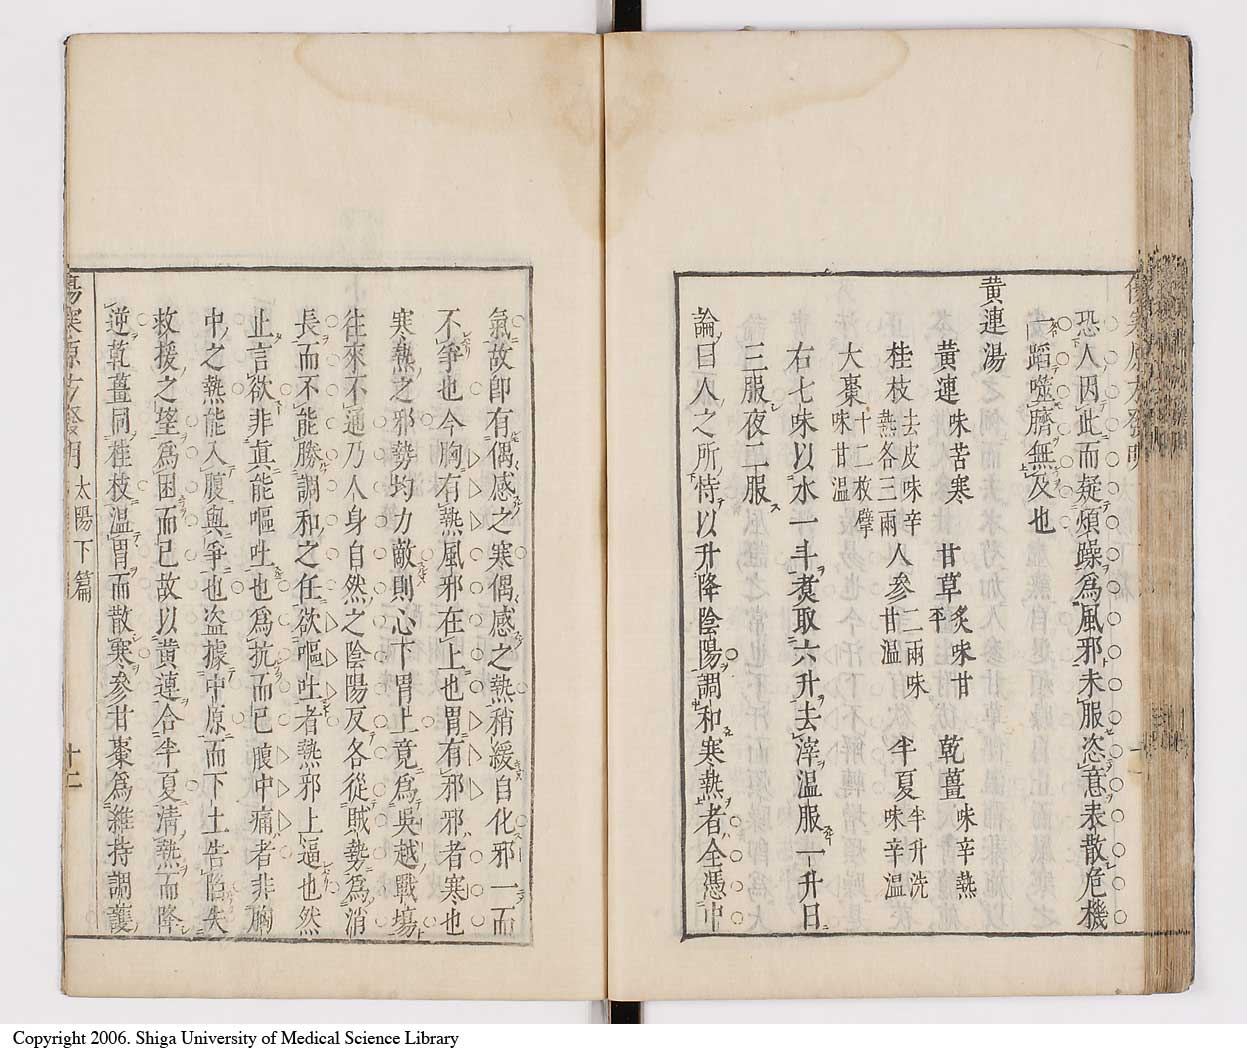 恐人因此而疑煩躁爲風邪未服恣意表散危機
一蹈噬臍無及也
黃連湯
黃連味苦寒 甘草炙味甘平 乾薑味辛熱
桂枝去皮味辛熱各三兩 人參二兩味甘溫 半夏半升洗味辛溫
大棗十二枚擘味甘溫
右七味以水一斗煑取六升去滓溫服一升日
三服夜二服
論曰人之所恃以升降陰陽調和寒熱者全憑中
氣故卽有偶感之寒偶感之熱稍緩自化邪一而
不爭也今胸有熱風邪在上也胃有邪邪者寒也
寒熱之邪勢均力敵則心下胃上竟爲吳越戰塲
往來不通乃人身自然之陰陽反各從賊勢爲消
長而不能勝調和之任欲嘔吐者熱邪上逼也然
止言欲非眞能嘔吐也爲抗而已腹中痛者非胸
中之熱能入腹與爭也盜據中原而下土告陷失
救援之望爲困而已故以黃連合半夏淸熱而降
逆乾薑同桂枝溫胃而散寒參甘棗爲維持調護
傷寒原方發明 太陽下篇 十二
Copyright 2006. Shiga University of Medical Science Library